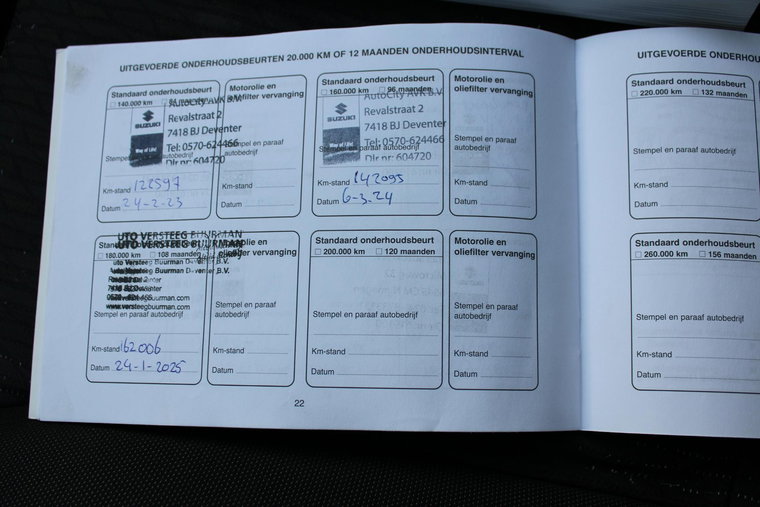 UITGEVOERDE ONDERHOUDSBEURTEN 20.000 KM OF 12 MAANDEN ONDERHOUDSINTERVAL
Standaard onderhoudsbeurt
140.000 km
AutoCity AVK B.V.
SUZUKI
Way of Life!
Revalstraat 2
7418 BJ Deventer
Tel: 0570-624466
Dlr nr: 604720
Stempel en paraaf autobedrijf
Km-stand 122597
Datum 24-2-23
Motorolie en
oliefilter vervanging
Stempel en paraaf
autobedrijf
Km-stand
Datum
Standaard onderhoudsbeurt
160.000 km 96 maanden
AutoCity AVK B.V.
SUZUKI
Way of Life!
Revalstraat 2
7418 BJ Deventer
Tel: 0570-624466
Dlr nr: 604720
Stempel en paraaf autobedrijf
Km-stand 142095
Datum 6-3-24
Motorolie en
oliefilter vervanging
Stempel en paraaf
autobedrijf
Km-stand
Datum
UTO VERSTEEG BUURMAN
180.000 km 108 maanden
uto Versteeg Buurman Deventer B.V.
7418 BZ Deventer
www.versteegbuurman.com
Stempel en paraaf autobedrijf
Km-stand 162006
Datum 24-1-2025
Motorolie en
oliefilter vervanging
Stempel en paraaf
autobedrijf
Km-stand
Datum
Standaard onderhoudsbeurt
200.000 km 120 maanden
Stempel en paraaf autobedrijf
Km-stand
Datum
Motorolie en
oliefilter vervanging
Stempel en paraaf
autobedrijf
Km-stand
Datum
22
UITGEVOERDE ONDERHOU
Standaard onderhoudsbeurt
220.000 km 132 maanden
Stempel en paraaf autobedrijf
Km-stand
Datum
Standaard onderhoudsbeurt
260.000 km 156 maanden
Stempel en paraaf autobedrijf
Km-stand
Datum